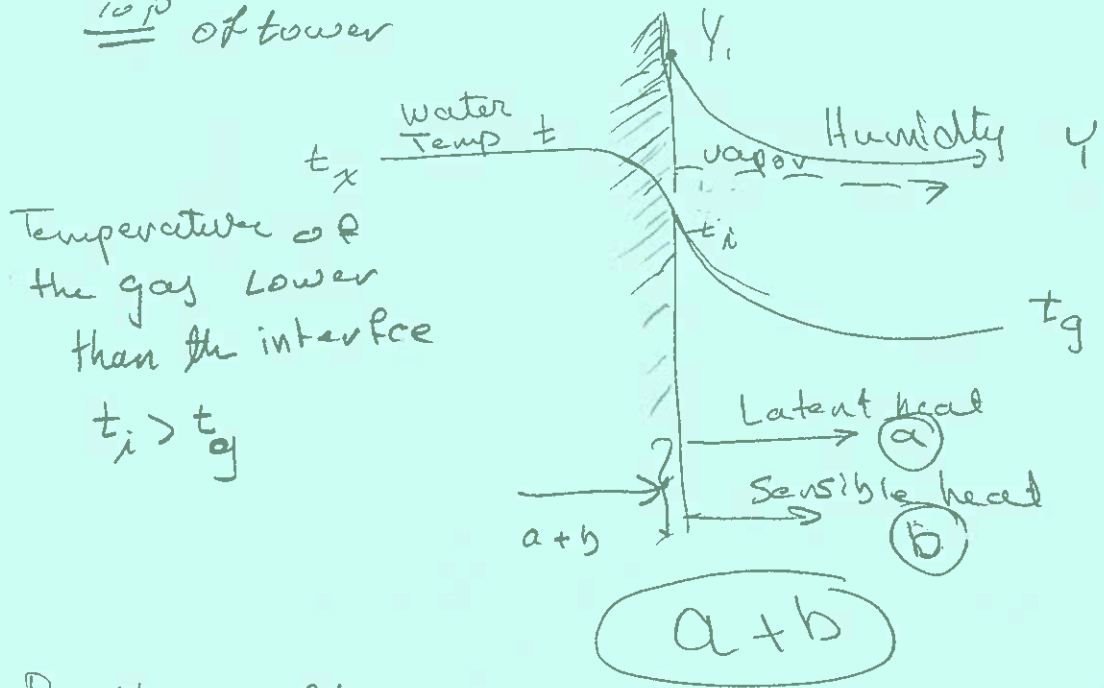 Top of tower
Yi
Water
Temp t
Humidty Y
tx
vapor
Temperature of
the gas Lower
than th interfce
ti > tg
ti
tg
Latent heat
a
Sensible heat
b
a + b
a + b